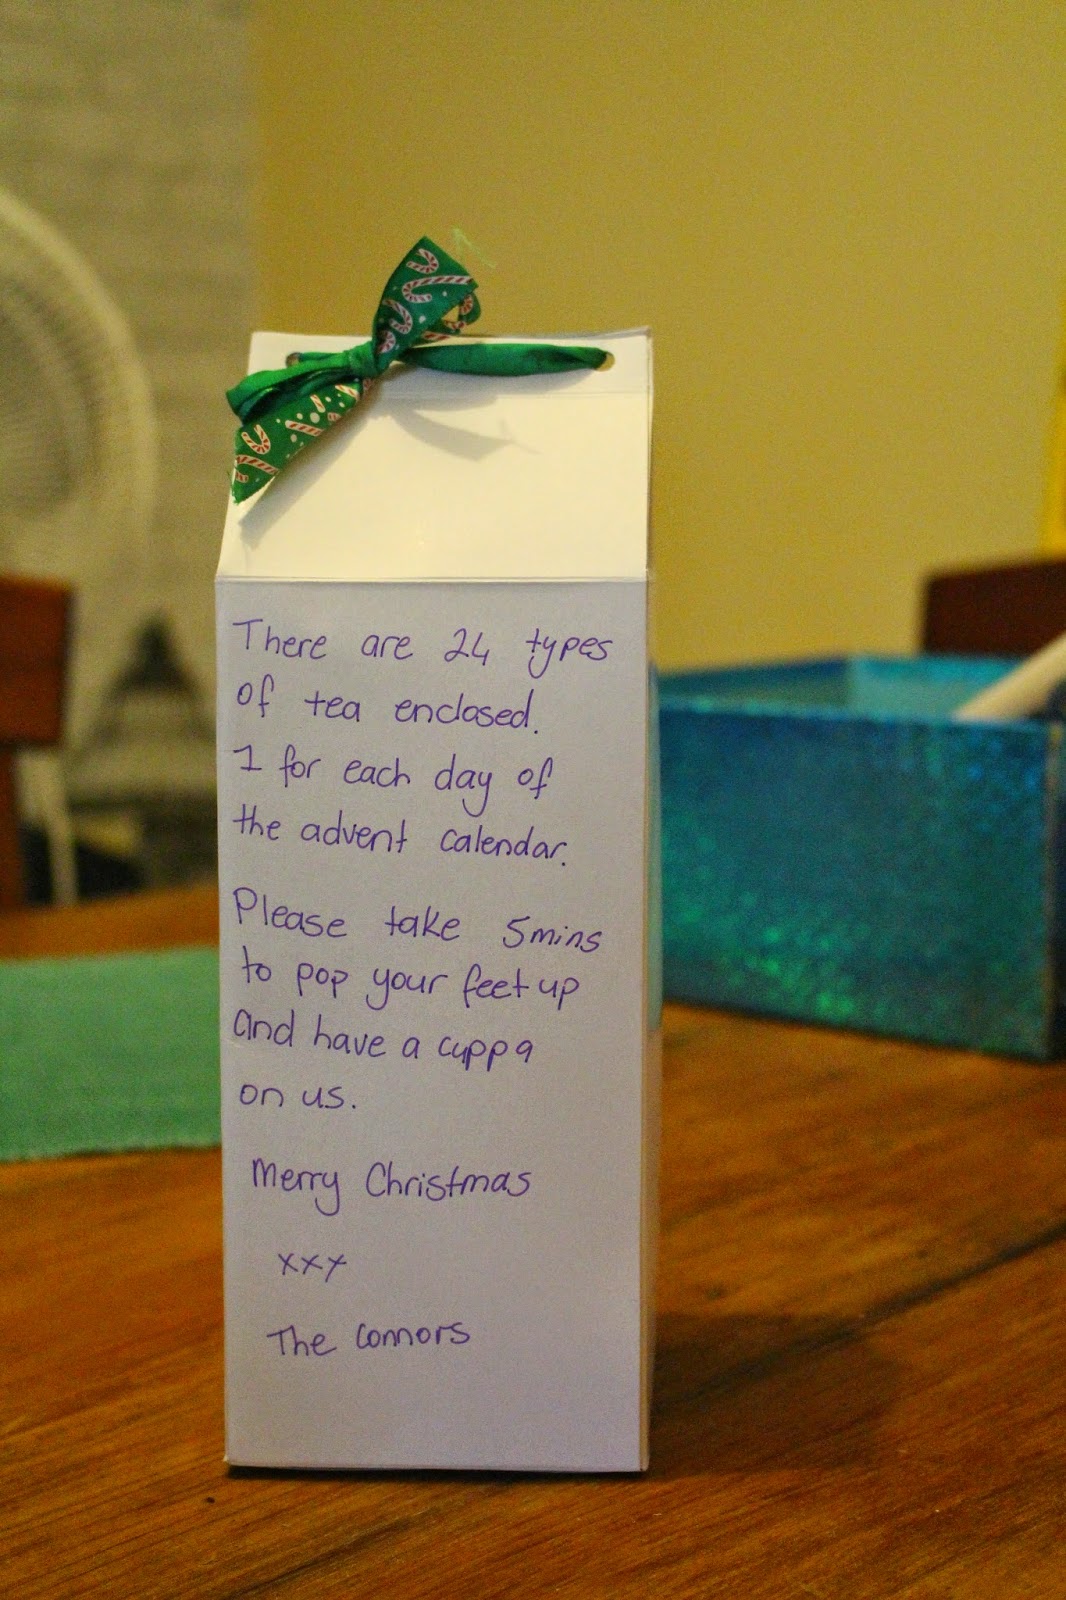 There are 24 types
of tea enclosed.
1 for each day of
the advent calendar.
Please take 5mins
to pop your feet up
and have a cuppa
on us.
Merry Christmas
xxx
The Connors